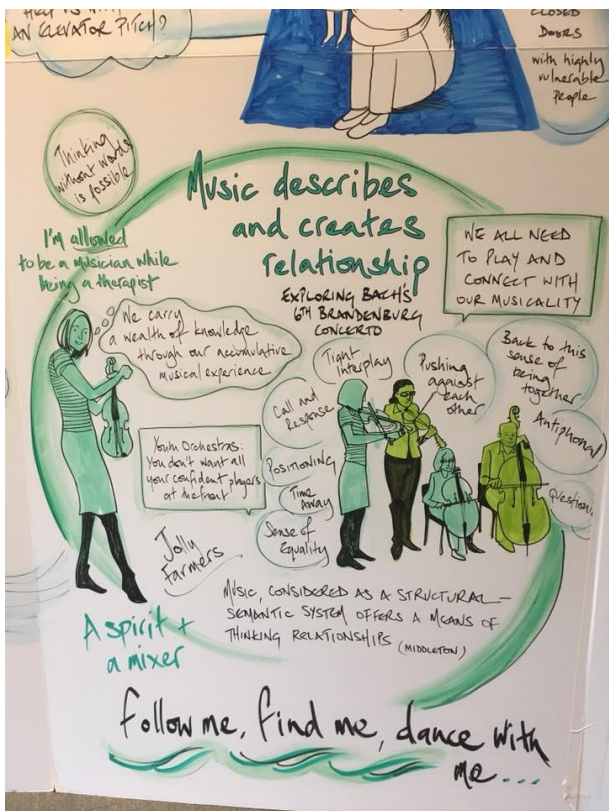 HELP US WITH
AN ELEVATOR PITCH?
CLOSED
DOORS
with highly
vulnerable
people
Thinking
without words
is possible
Music describes
and creates
relationship
EXPLORING BACH'S
6TH BRANDENBURG
CONCERTO
I'm allowed
to be a musician while
being a therapist
WE ALL NEED
TO PLAY AND
CONNECT WITH
OUR MUSICALITY
We carry
a wealth of knowledge
through our accumulative
musical experience
Tight
Interplay
Pushing
against
each
other
Back to this
sense of
being
together
Call and
Response
Antiphonal
Youth Orchestras:
You don't want all
your confident players
at the front
POSITIONING
Time
Away
Sense of
Equality
Question
Jolly
Farmers
MUSIC, CONSIDERED AS A STRUCTURAL-
SEMANTIC SYSTEM OFFERS A MEANS OF
THINKING RELATIONSHIPS (MIDDLETON)
A spirit +
a mixer
Follow me, find me, dance with
me...